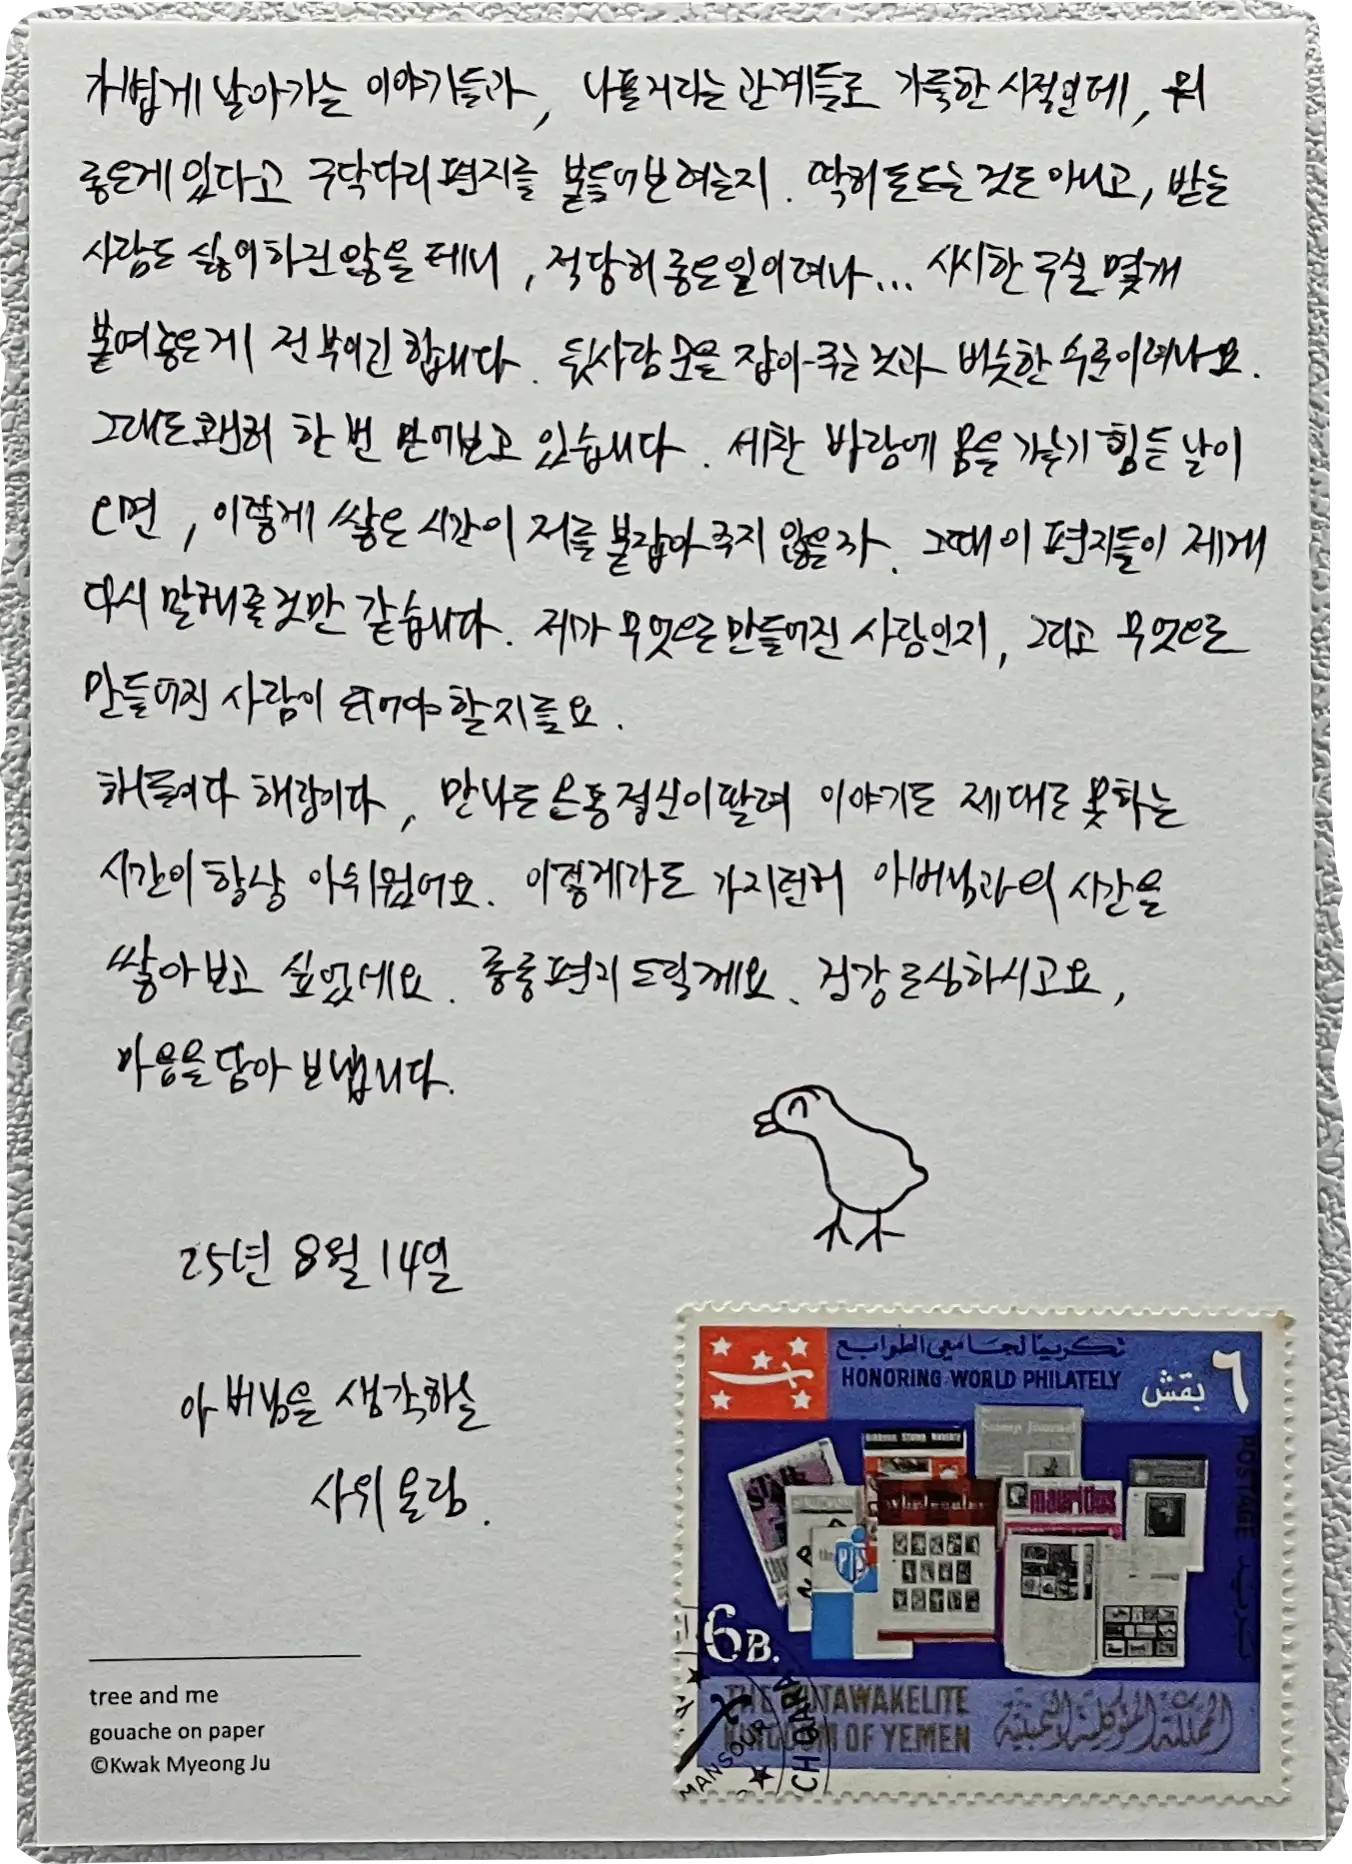 가볍게 날아가는 이야기들과, 나풀거리는 관계들로 가득한 시절인데, 뭐
좋은게 있다고 구닥다리 편지를 붙들어보려는지. 딱히 돈드는 것도 아니고, 받는
사람도 싫어하진 않을 테니, 적당히 좋은 일이려나... 시시한 구실 몇개
붙여놓은게 전부이긴 합니다. 뒷사람 문을 잡아주는 것과 비슷한 수준이려나요.
그래도 괜히 한 번 믿어보고 있습니다. 세찬 바람에 몸을 가눌기 힘든 날이
오면, 이렇게 쌓은 시간이 저를 붙잡아 주지 않을까. 그때 이 편지들이 제게
다시 말해줄 것만 같습니다. 제가 무엇으로 만들어진 사람인지, 그리고 무엇으로
만들어진 사람이 되어야 할지를요.
해들이다 해랑이다, 만나도 온통 정신이 팔려 이야기도 제대로 못하는
시간이 항상 아쉬웠어요. 이렇게라도 가지런히 아버님과의 시간을
쌓아보고 싶었네요. 종종 편지 드릴께요. 건강 조심하시고요,
마음을 담아 보냅니다.
25년 8월 14일
아버님을 생각하는
사위 올림.
تكريمًا لجامعي الطوابع
HONORING WORLD PHILATELY
٦ بقش
POSTAGE
بريد
Stamp Journal
mauritius
6B.
THE MUTAWAKELITE
KINGDOM OF YEMEN
المملكة المتوكلية اليمنية
MANSOUR
CHOARA
tree and me
gouache on paper
©Kwak Myeong Ju